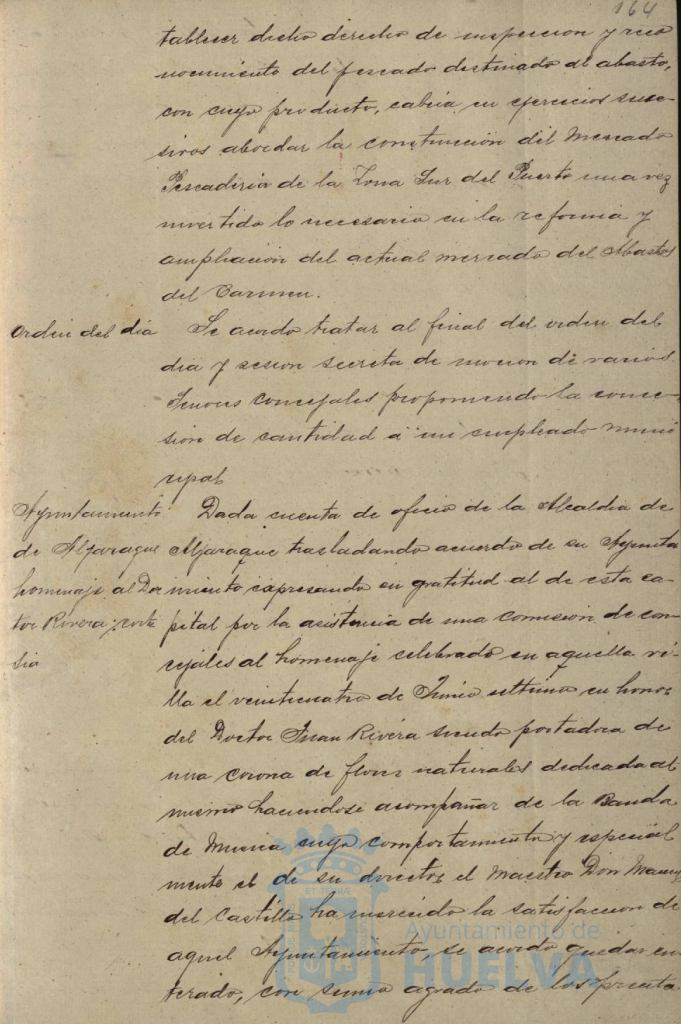 164
tablecer dicho derecho de inspeccion y reco
nocimiento del pescado destinado al abasto,
con cuyo producto, cabria en ejercicios suce-
sivos abordar la construccion del Mercado
Pescaderia de la Zona Sur del Puerto una vez
invertido lo necesario en la reforma y
ampliacion del actual mercado del Abastos
del Carmen.
Orden del dia
Se acordo tratar al final del orden del
dia y sesion secreta de mocion de varios
Señores concejales proponiendo la conce-
sion de cantidad á un empleado muni
cipal
Ayuntamiento
de Aljaraque
homenaje al Doc
tor Rivera; corte
sia
Dada cuenta de oficio de la Alcaldia de
Aljaraque trasladando acuerdo de su Ayunta
miento expresando su gratitud al de esta ca-
pital por la asistencia de una comision de con-
cejales al homenaje celebrado en aquella vi-
lla el veinticuatro de Junio ultimo en honor
del Doctor Juan Rivera siendo portadora de
una corona de flores naturales dedicada al
mismo haciendose acompañar de la Banda
de Musica cuyo comportamiento y especial
mente el de su director el Maestro Don Manuel
del Castillo ha merecido la satisfaccion de
aquel Ayuntamiento, se acordo quedar en
terado, con sumo agrado de los presenta
Ayuntamiento de
HUELVA